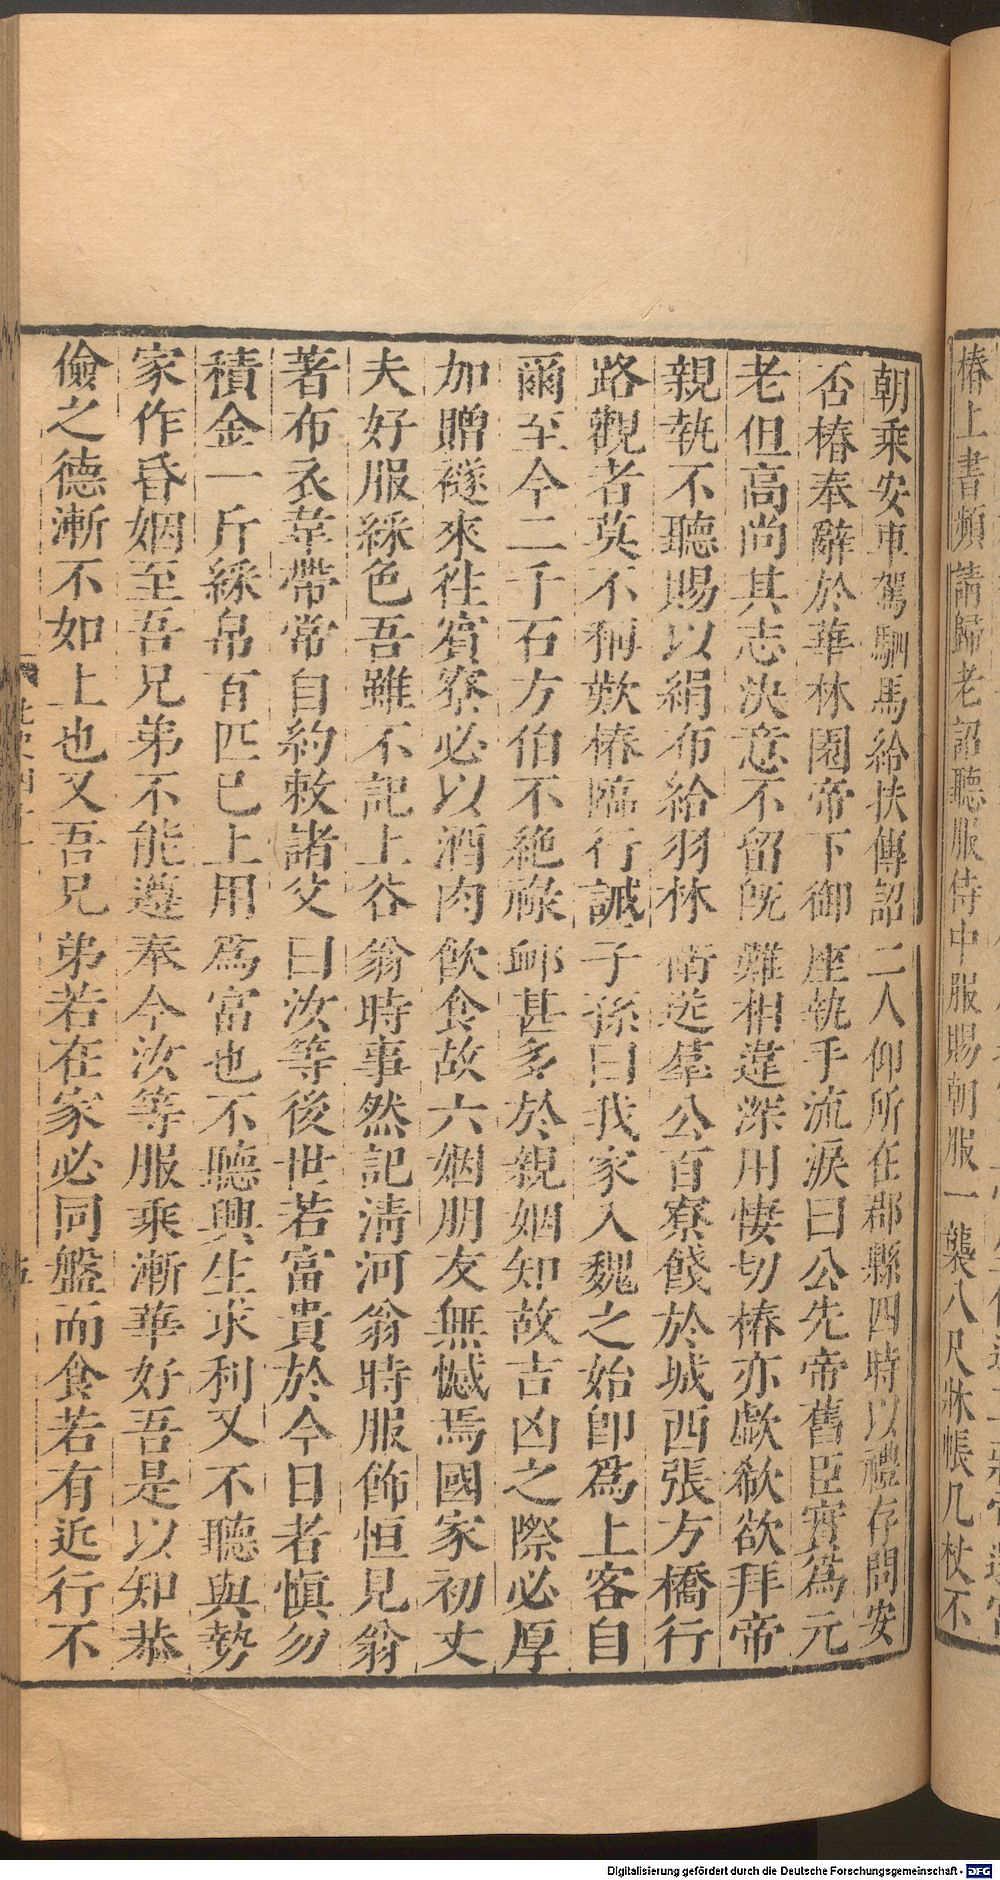 椿上書頻請歸老詔聽服侍中服賜朝服一襲八尺牀帳几杖不
朝乘安車駕駟馬給扶傳詔二人仰所在郡縣四時以禮存問安
否椿奉辭於華林園帝下御座執手流淚曰公先帝舊臣實爲元
老但高尚其志決意不留旣難相違深用悽切椿亦歔欷欲拜帝
親執不聽賜以絹布給羽林衛送羣公百寮餞於城西張方橋行
路觀者莫不稱歎椿臨行誡子孫曰我家入魏之始卽爲上客自
爾至今二千石方伯不絶祿卹甚多於親姻知故吉凶之際必厚
加贈襚來往賓寮必以酒肉飲食故六姻朋友無憾焉國家初丈
夫好服綵色吾雖不記上谷翁時事然記清河翁時服飾恒見翁
著布衣韋帶常自約敕諸父曰汝等後世若富貴於今日者愼勿
積金一斤綵帛百匹已上用爲富也不聽興生求利又不聽與勢
家作昏姻至吾兄弟不能遵奉今汝等服乘漸華好吾是以知恭
儉之德漸不如上也又吾兄弟若在家必同盤而食若有近行不
Digitalisierung gefördert durch die Deutsche Forschungsgemeinschaft - DFG